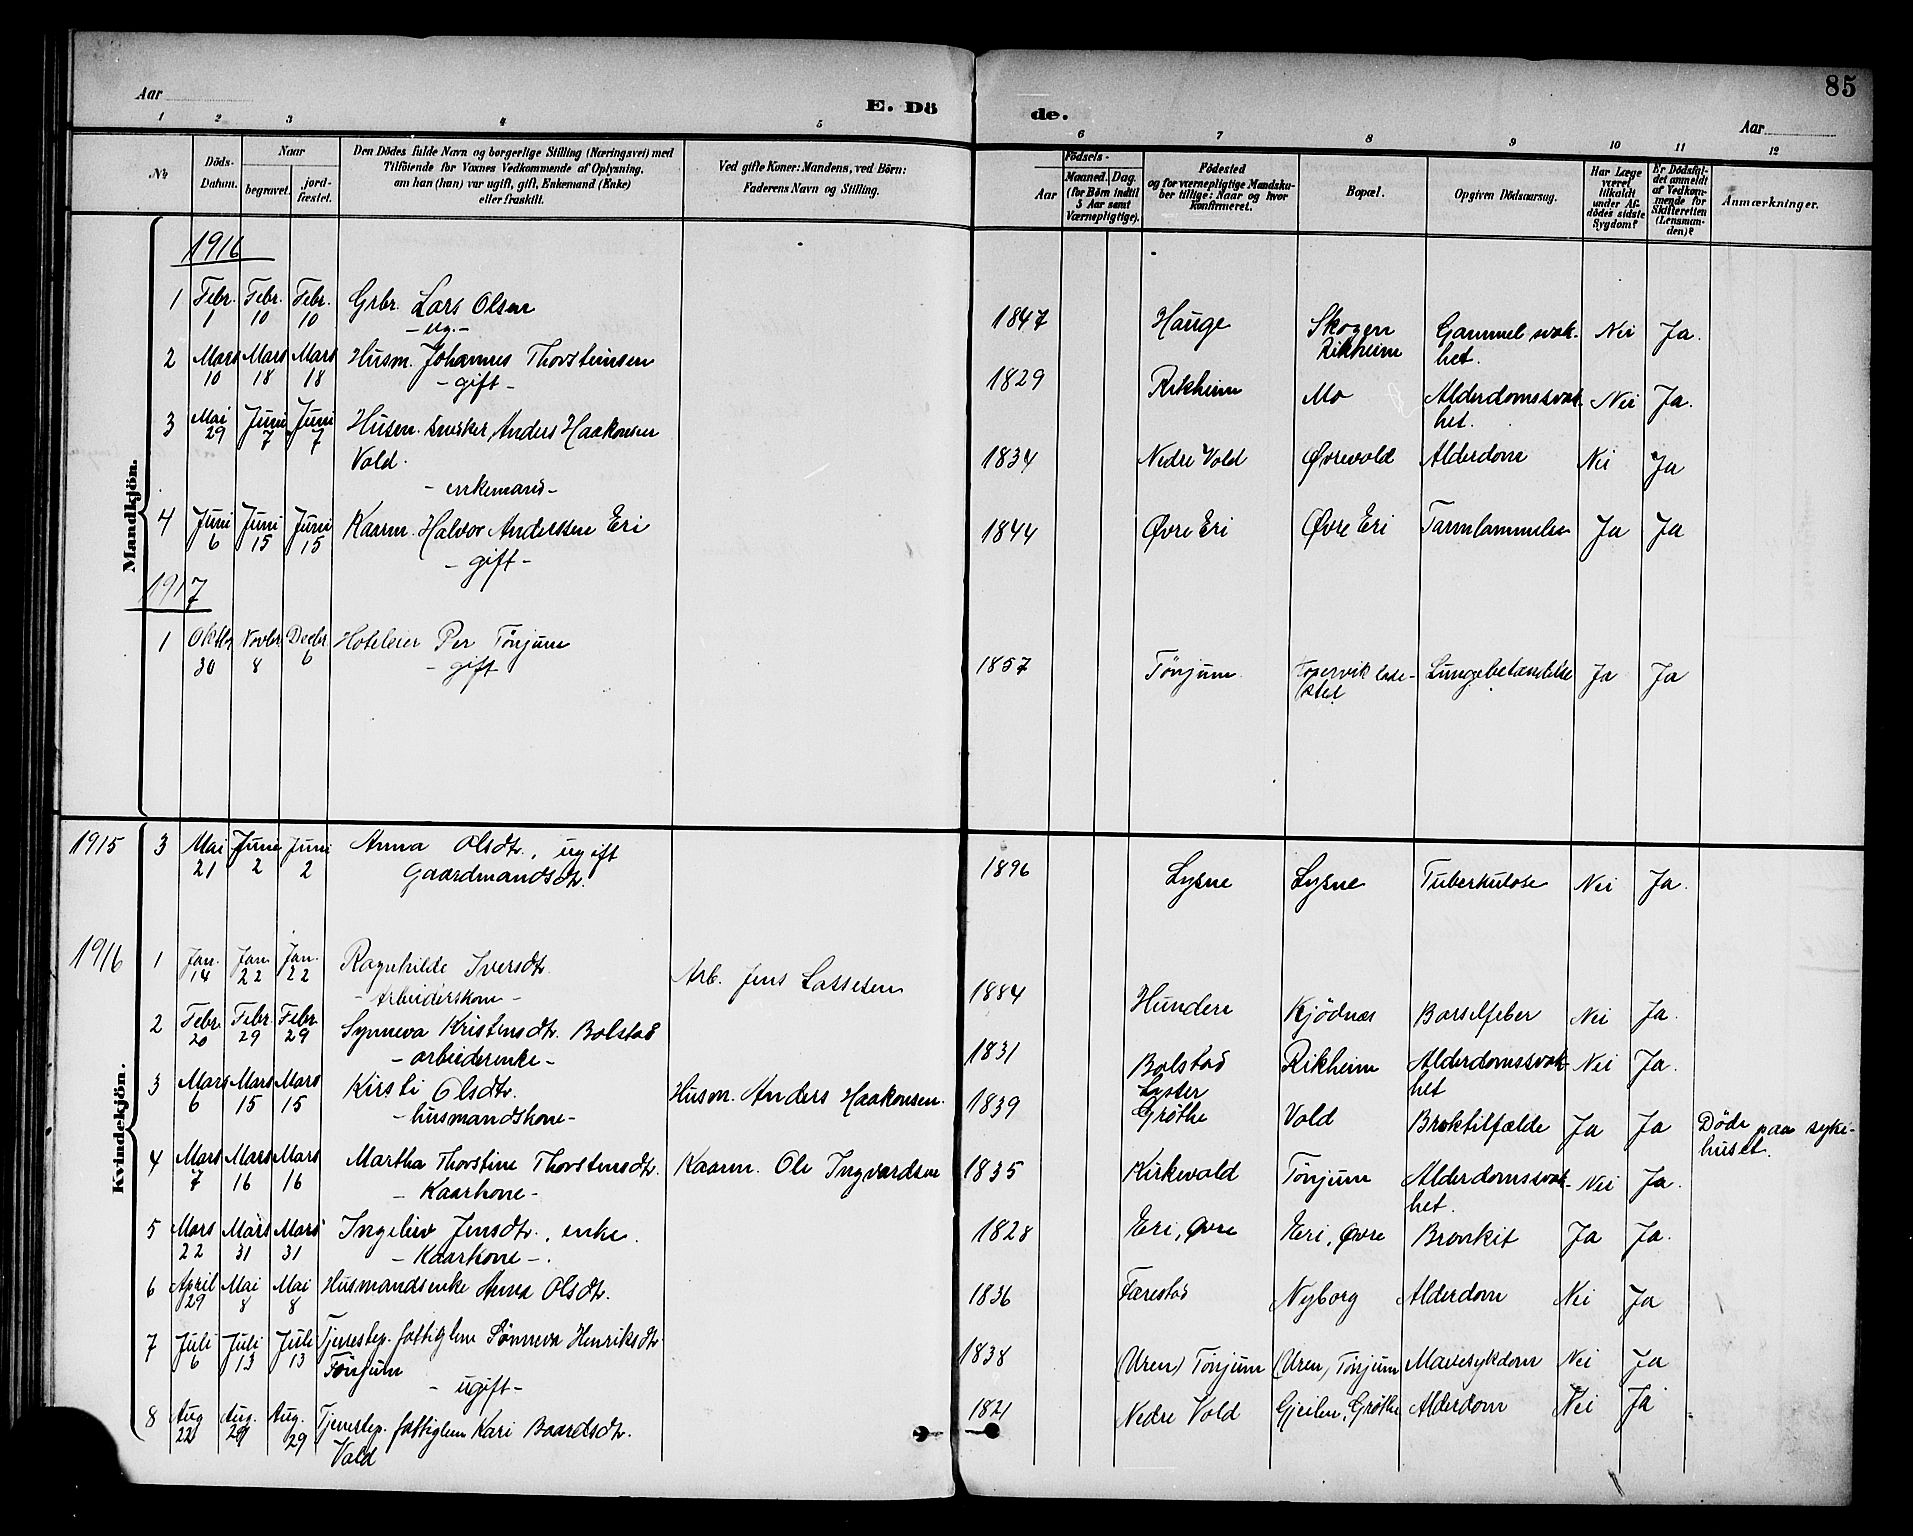 85
Aar
E. Dö
de.
Aar
1 2 3 4 5 6 7 8 9 10 11 12
No
Döds-Datum.
Naar
begravet.
jord-fæstet.
Den Dödes fulde Navn og borgerlige Stilling (Næringsvei) med
Tilföiende for Voxnes Vedkommende af Oplysning,
om han (hun) var ugift, gift, Enkemand (Enke)
eller fraskilt.
Ved gifte Koner: Mandens, ved Börn:
Faderens Navn og Stilling.
Födsels-
Aar
Maaned. Dag.
(for Börn indtil
5 Aar samt
Værnepligtige).
Födested
og for værnepligtige Mandsku-
ber tillige: Naar og hvor
Konfirmeret.
Bopæl.
Opgiven Dödsaarsag.
Har Læge
været
tilkaldt
under Af-
dödes sidste
Sygdom?
Er Dödsfal-
det anmeldt
af Vedkom-
mende for
Skifteretten
(Lensman-
den)?
Anmærkninger.
Mandkjön.
1916
1 Febr. 1 Febr. 10 Febr. 10 Grbr. Lars Olsen - ug. - 1847 Hauge Skogen Rikheim Gammel svak-het. Nei Ja.
2 Mars 10 Mars 18 Mars 18 Husm. Johannes Thorsteinsen - gift - 1829 Rikheim Mo Alderdomssvak-het. Nei Ja.
3 Mai 29 Juni 7 Juni 7 Husm. snekker Anders Haakonsen Vold. - enkemand - 1834 Nedre Vold Øvrevold Alderdom Nei Ja
4 Juni 6 Juni 15 Juni 15 Kaarm. Halvor Anderssen Eri - gift - 1844 Øvre Eri Øvre Eri Tarmlammelse Ja Ja
1917
1 Oktbr 30 Novbr 8 Decbr 6 Hoteleier Per Tønjum - gift 1857 Tønjum Lungebetændelse Ja Ja
Kvindekjön.
1915 3 Mai 21 Juni 2 Juni 2 Anna Olsdtr., ugift Gaardmandsdtr. 1896 Lysne Lysne Tuberkulose Nei Ja.
1916 1 Jan. 14 Jan 22 Jan. 22 Ragnhilde Iversdtr. - Arbeiderskone - Arb. Jens Lassesen 1884 Hundere Kjødnæs Barselfeber Nei Ja.
2 Febr. 20 Febr. 29 Febr. 29 Synneva Kristensdtr. Bolstad - arbeiderenke - 1831 Bolstad Lyster Rikheim Alderdomssvak-het Nei Ja.
3 Mars 6 Mars 15 Mars 15 Kirsti Olsdtr. - husmandskone - Husm. Anders Haakonsen. 1839 Grøthe Vold Broktilfælde Ja Ja Døde paa syke-huset.
4 Mars 7 Mars 16 Mars 16 Martha Thorstine Thorstensdtr. - Kaarkone - Kaarm. Ole Ingvardsen 1835 Kirkevold Tønjum Alderdomssvak-het. Nei Ja.
5 Mars 22 Mars 31 Mars 31 Ingeliv Jensdtr., enke. - Kaarkone -. 1828 Eri, Øvre Eri, Øvre Bronkit Ja Ja.
6 April 29 Mai 8 Mai 8 Husmandsenke Anna Olsdtr. 1836 Færestad Nyborg Alderdom Nei Ja
7 Juli 6 Juli 13 Juli 13 Tjenestep. fattiglem Sønneva Henriksdtr Tønjum - ugift - 1838 (Uren) Tønjum (Uren) Tønjum Mavesykdom Nei Ja
8 Aug 22 Aug. 29 Aug. 29 Tjenestep. fattiglem Kari Baardsdtr. Vold 1821 Nedre Vold Gjeilen, Grøthe Alderdom Nei Ja